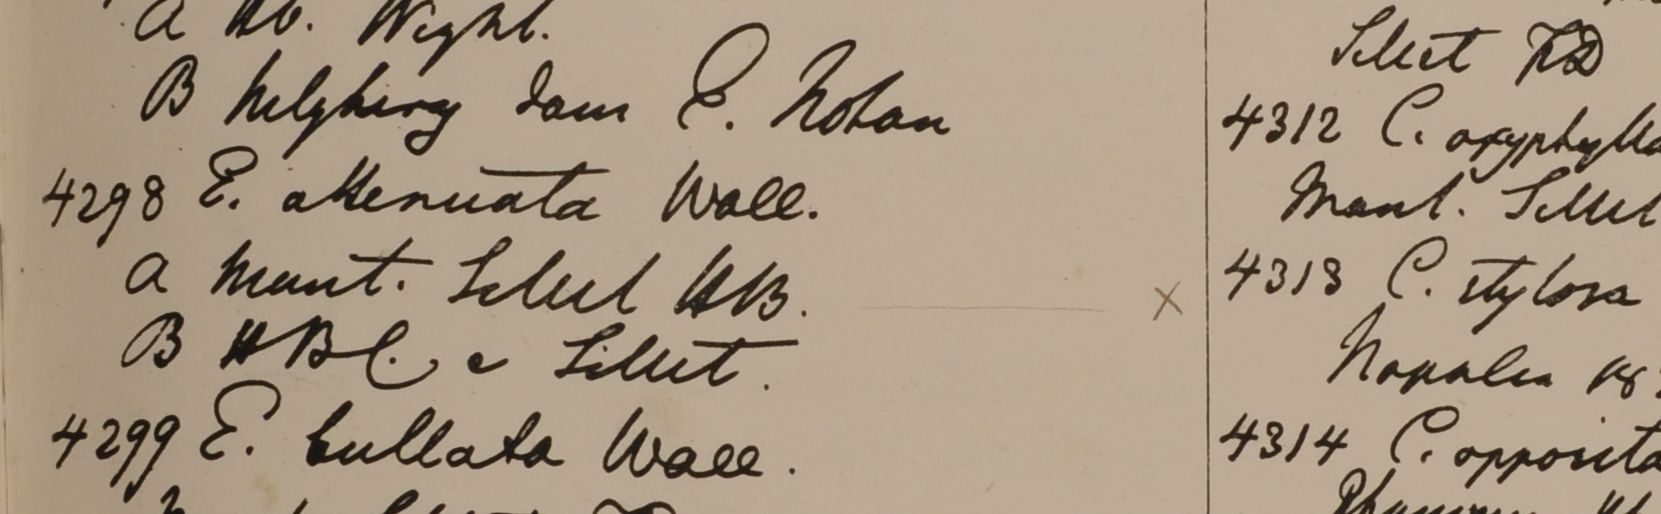 a Hb. Wight.
B Nelgherry dam E. Notan
4298 E. attenuata Wall.
a Mont. Sillet HB.
B HBC. e Sillet.
4299 E. bullata Wall.
Sillet FD
4312 C. oxyphylla
Mont. Sillet
4313 C. stylosa
Napalia 18
4314 C. opposita